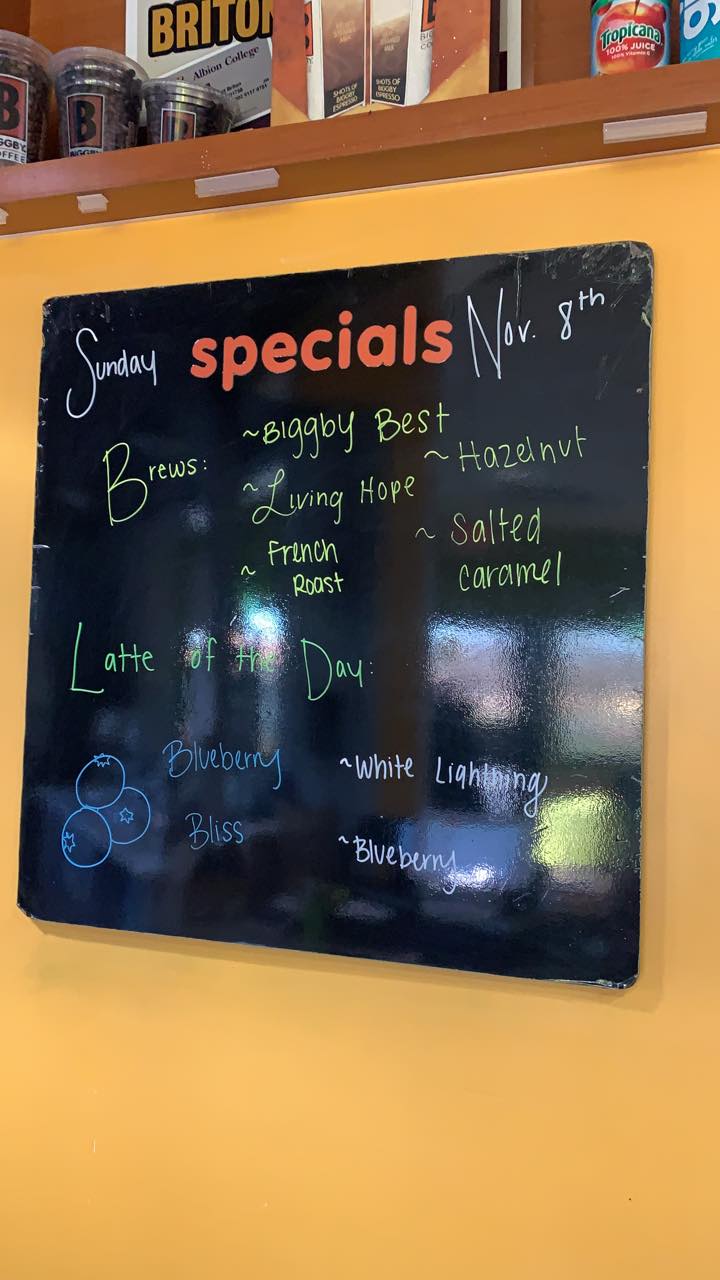 BRITON
Albion College
SHOTS OF
BIGGBY
ESPRESSO
SHOTS OF
BIGGBY
ESPRESSO
Tropicana
100% JUICE
B
COFFEE
B
BIGGBY
B
Sunday specials Nov. 8th
Brews: ~Biggby Best
~Hazelnut
~Living Hope
~Salted
caramel
~French
Roast
Latte of the Day:
Blueberry
Bliss
~White Lightning
~Blueberry